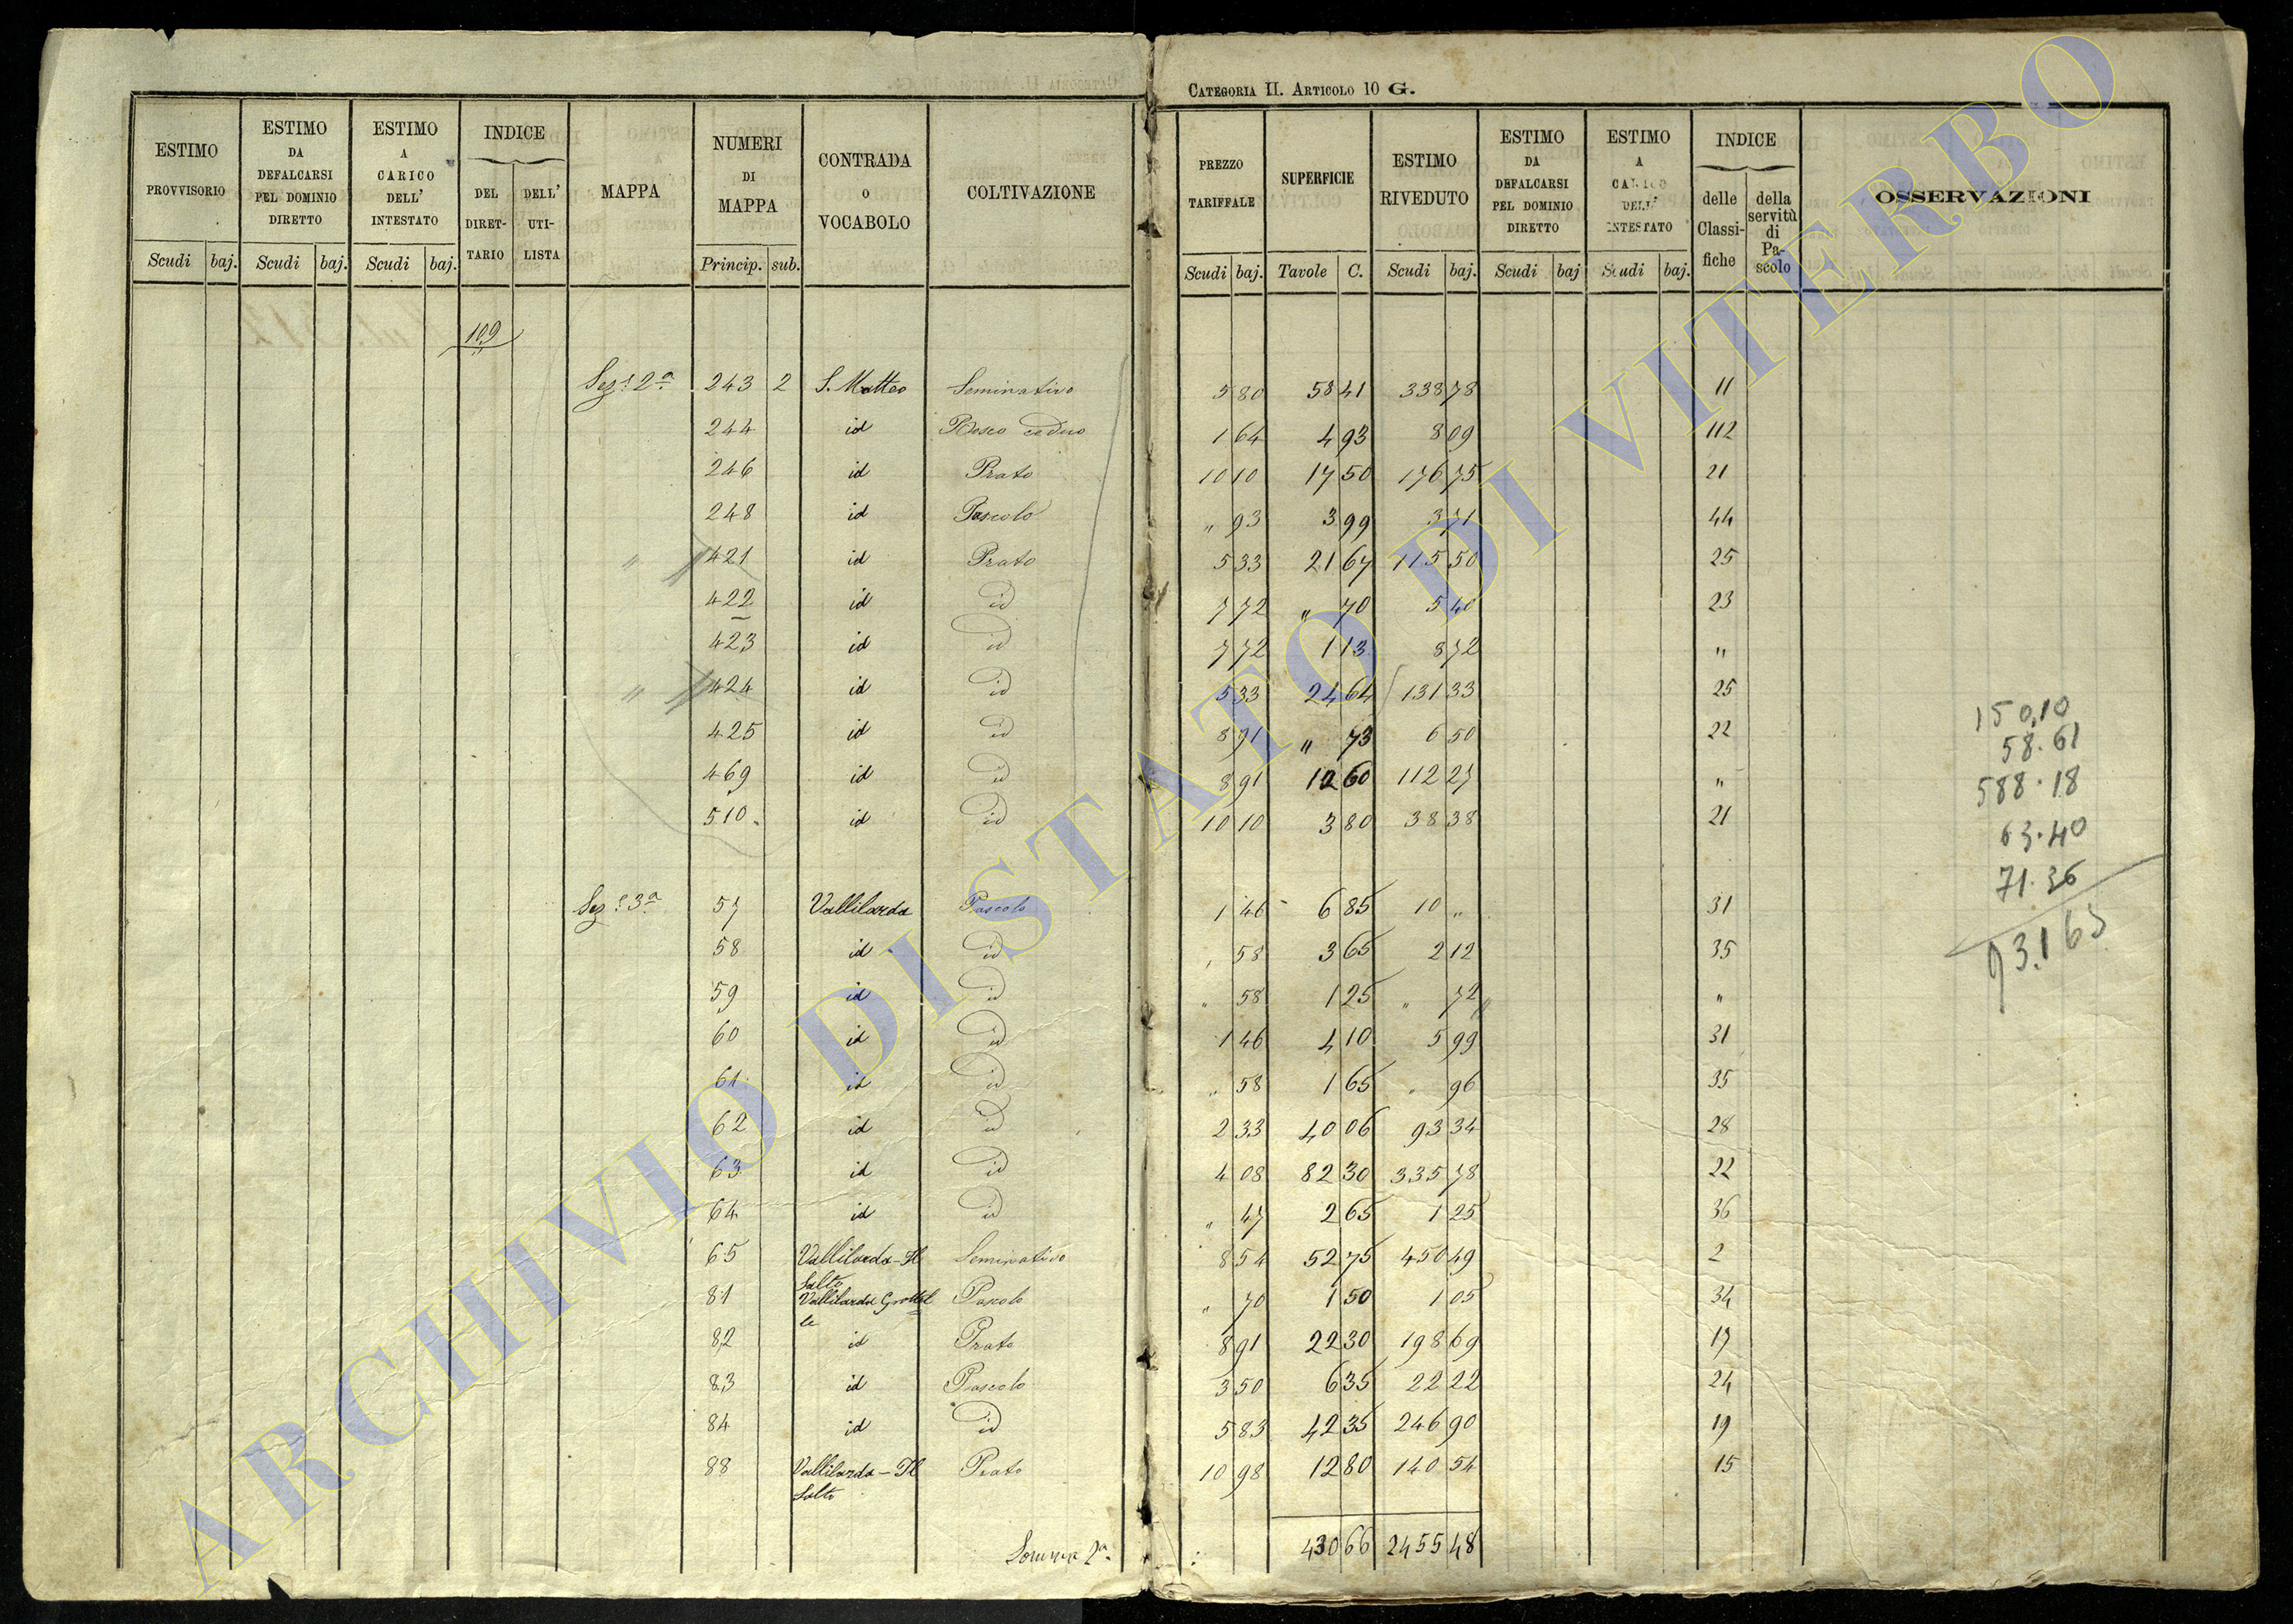 CATEGORIA II. ARTICOLO 10 G.
ESTIMO PROVVISORIO | ESTIMO DA DEFALCARSI PEL DOMINIO DIRETTO | ESTIMO A CARICO DELL' INTESTATO | INDICE DEL DIRET-TARIO | DELL' UTI-LISTA | MAPPA | NUMERI DI MAPPA | CONTRADA O VOCABOLO | COLTIVAZIONE | PREZZO TARIFFALE | SUPERFICIE | ESTIMO RIVEDUTO | ESTIMO DA DEFALCARSI PEL DOMINIO DIRETTO | ESTIMO A CARICO DELL' INTESTATO | INDICE delle Classi-fiche | della servitù di Pa-scolo | OSSERVAZIONI
Scudi | baj. | Scudi | baj. | Scudi | baj. | Princip. | sub. | Scudi | baj. | Tavole | C. | Scudi | baj. | Scudi | baj | Scudi | baj.
109
Sez.e 2a | 243 | 2 | S. Matteo | Seminativo | 5 80 | 58 41 | 338 78 | 11
244 | id | Bosco ceduo | 1 64 | 4 93 | 8 09 | 112
246 | id | Prato | 10 10 | 17 50 | 176 75 | 21
248 | id | Pascolo | " 93 | 3 99 | 3 71 | 44
" | 421 | id | Prato | 5 33 | 21 67 | 115 50 | 25
422 | id | id | 7 72 | " 70 | 5 40 | 23
423 | id | id | 7 72 | 1 13 | 8 72 | "
" | 424 | id | id | 5 33 | 24 64 | 131 33 | 25
425 | id | id | 8 91 | " 73 | 6 50 | 22
469 | id | id | 8 91 | 12 60 | 112 27 | "
510 | id | id | 10 10 | 3 80 | 38 38 | 21
Sez.e 3a | 57 | Vallilarda | Pascolo | 1 46 | 6 85 | 10 " | 31
58 | id | id | " 58 | 3 65 | 2 12 | 35
59 | id | id | " 58 | 1 25 | " 72 | "
60 | id | id | 1 46 | 4 10 | 5 99 | 31
61 | id | id | " 58 | 1 65 | " 96 | 35
62 | id | id | 2 33 | 40 06 | 93 34 | 28
63 | id | id | 4 08 | 82 30 | 335 78 | 22
64 | id | id | " 47 | 2 65 | 1 25 | 36
65 | Vallilarda - Il Salto | Seminativo | 8 54 | 52 75 | 450 49 | 2
81 | Vallilarda Grottelle | Pascolo | " 70 | 1 50 | 1 05 | 34
82 | id | Prato | 8 91 | 22 30 | 198 69 | 17
83 | id | Pascolo | 3 50 | 6 35 | 22 22 | 24
84 | id | id | 5 83 | 42 35 | 246 90 | 19
88 | Vallilarda - Il Salto | Prato | 10 98 | 12 80 | 140 54 | 15
Somma 2a | 430 66 | 2455 48
150.10
58.61
588.18
63.40
71.36
93.165
ARCHIVIO DI STATO DI VITERBO